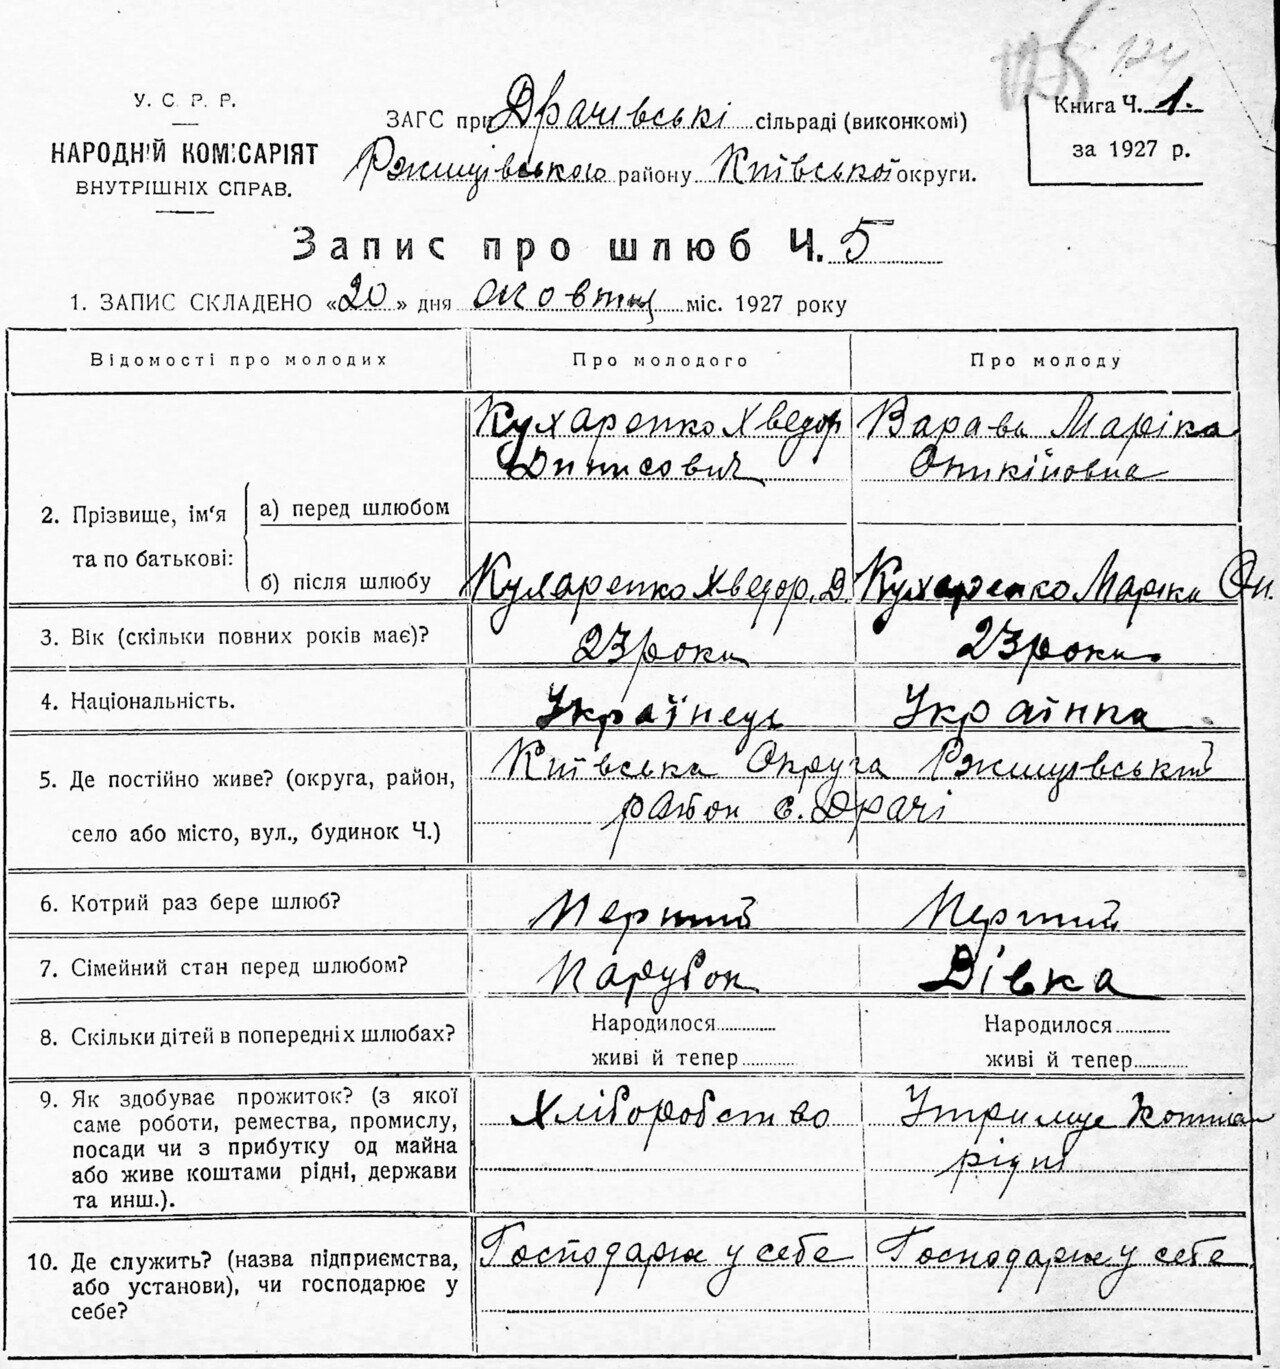 125 124
У. С. Р. Р.
НАРОДНІЙ КОМІСАРІЯТ
ВНУТРІШНІХ СПРАВ.
ЗАГС при Драчівські сільраді (виконкомі)
Ржищівського району Київської округи.
Книга Ч. 1.
за 1927 р.
Запис про шлюб Ч. 5
1. ЗАПИС СКЛАДЕНО «20» дня Жовтня міс. 1927 року
Відомості про молодих
Про молодого
Про молоду
2. Прізвище, ім'я
та по батькові:
а) перед шлюбом
Кухаренко Хведор
Динисович
Варава Маріка
Оникійовна
б) після шлюбу
Кухаренко Хведор. Д.
Кухаренко Маріка Он.
3. Вік (скільки повних років має)?
23 роки
23 роки.
4. Національність.
Українець
Українка
5. Де постійно живе? (округа, район,
село або місто, вул., будинок Ч.)
Київська Округа Ржищівський
район с. Драчі
6. Котрий раз бере шлюб?
Перший
Перший
7. Сімейний стан перед шлюбом?
Парубок
Дівка
8. Скільки дітей в попередніх шлюбах?
Народилося
живі й тепер
Народилося
живі й тепер
9. Як здобуває прожиток? (з якої
саме роботи, ремества, промислу,
посади чи з прибутку од майна
або живе коштами рідні, держави
та инш.).
Хліборобство
Утримує
рідні
10. Де служить? (назва підприємства,
або установи), чи господарює у
себе?
Господарює у себе
Господарює у себе